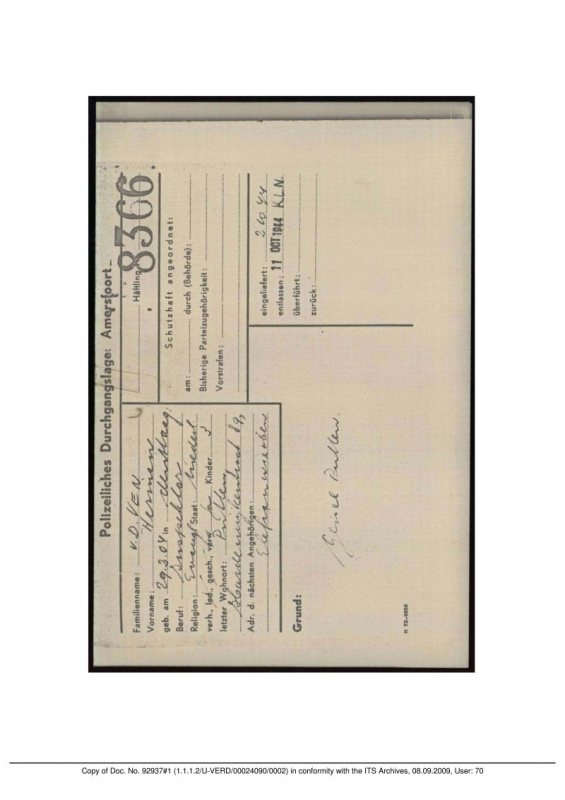 Polizeiliches Durchgangslager Amersfoort
Familienname: v.D. VEN
Vorname: Herman
geb. am 29.3.04 in den Haag
Beruf: Inspektor
Religion: Evang. Staat: Niederl
verh., led., gesch., verw. Kinder 3
letzter Wohnort: Putten
89,
Adr. d. nächsten Angehörigen:
Ehefrau w. oben
Häftling 8366
Schutzhaft angeordnet:
am: durch (Behörde):
Bisherige Parteizugehörigkeit:
Vorstrafen:
eingeliefert: 2 10 44
entlassen: 11 OCT 1944 K.L.N.
überführt:
zurück:
Grund:
Geisel Putten.
Copy of Doc. No. 92937#1 (1.1.1.2/U-VERD/00024090/0002) in conformity with the ITS Archives, 08.09.2009, User: 70